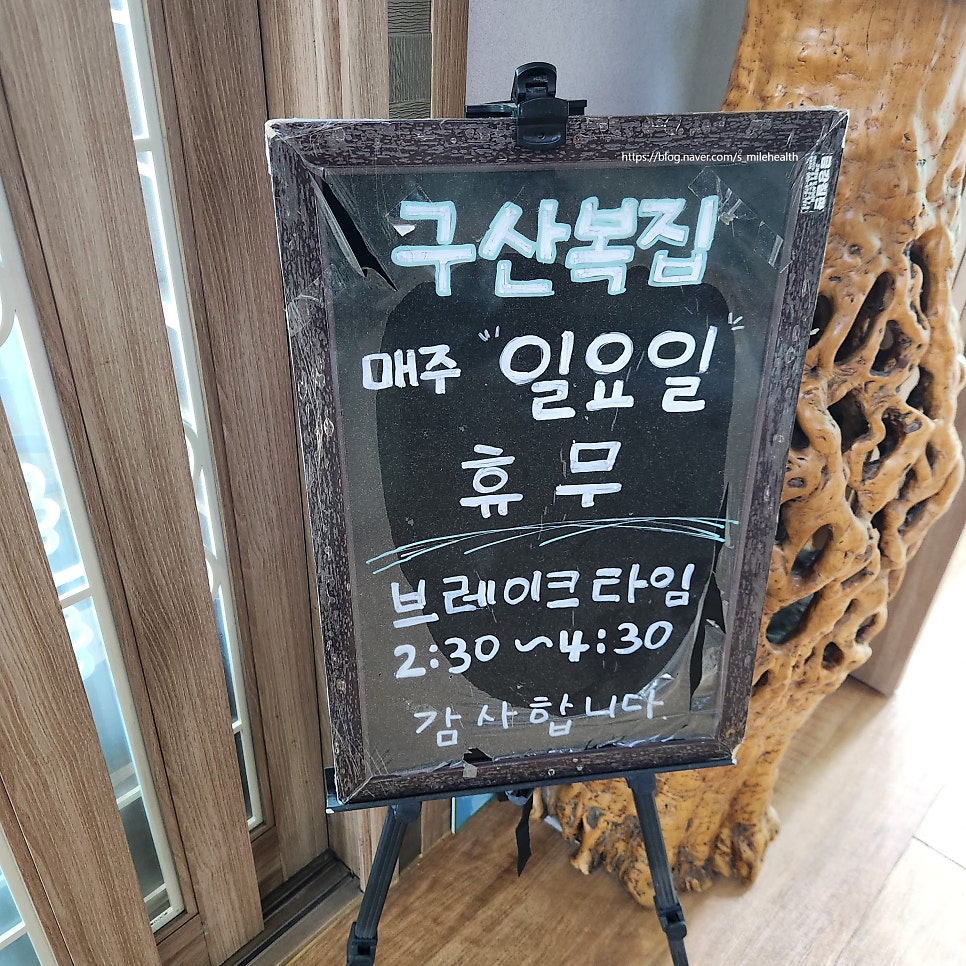 https://blog.naver.com/s_milehealth
구산복집
매주 "일요일"
휴무
브레이크타임
2:30~4:30
감사합니다.